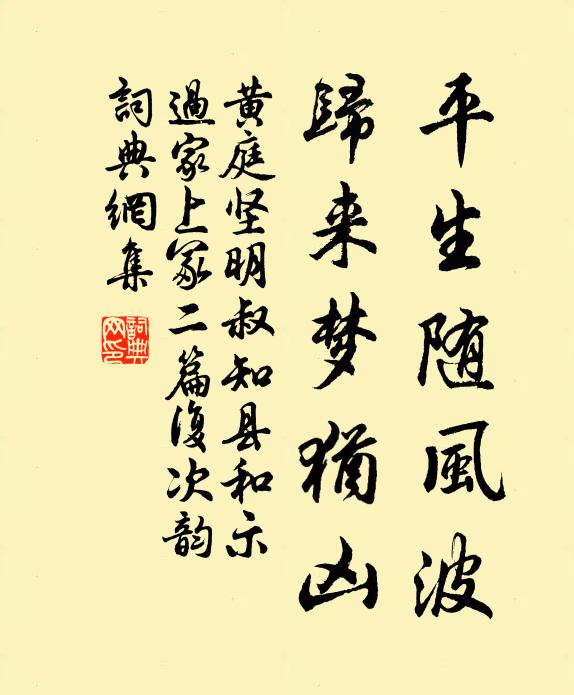 平生随風波
歸来梦猶凶
黄庭坚明叔知县和示
過家上冢二篇復次韵
詞典網集
詞典网印